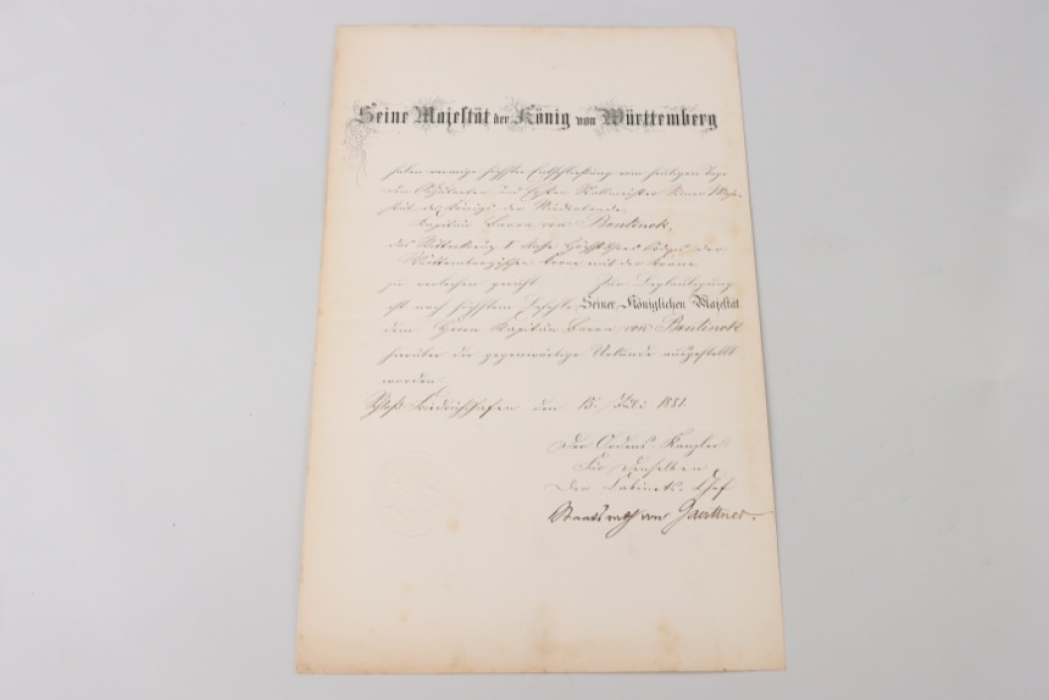 Seine Majestät der König von Württemberg
haben vermöge höchster Entschließung vom heutigen Tage
dem Adjutanten und Ersten Stallmeister Seiner Maje-
stät des Königs der Niederlande,
Kapitän Baron von Bentinck,
das Ritterkreuz I. Classe Höchst Ihres Ordens der
Württembergischen Krone mit der Krone
zu verleihen geruht. Zur Beglaubigung
ist nach höchstem Befehle Seiner Königlichen Majestät
dem Herrn Kapitän Baron von Bentinck
hierüber die gegenwärtige Urkunde ausgestellt
worden.
Schloß Friedrichshafen den 15. Juli 1881.
Der Ordens-Kanzler
Für denselben
Der Cabinets-Chef
Staatsrath von Gaerttner.